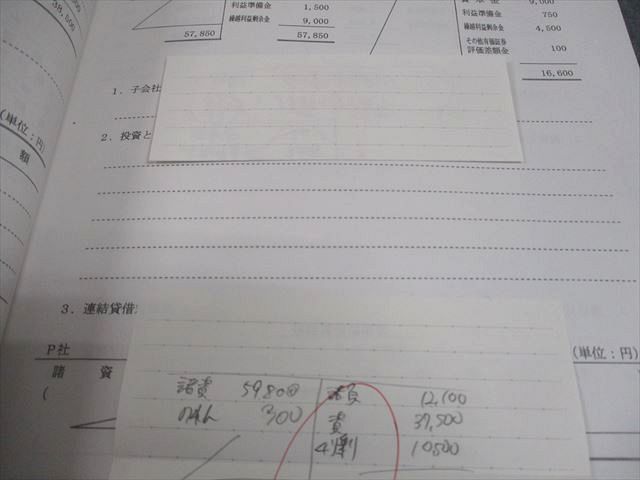 38,500
利益準備金 1,500
繰越利益剰余金 9,000
57,850 57,850
資本金 9,000
利益準備金 750
繰越利益剰余金 4,500
その他有価証券
評価差額金 100
16,600
1．子会社
(単位：円)
額
2．投資と
3．連結貸借
P社
(単位：円)
諸 資
(
諸資 59800 諸負 12,100
のれん 300 資 37,500
4利剰 10500